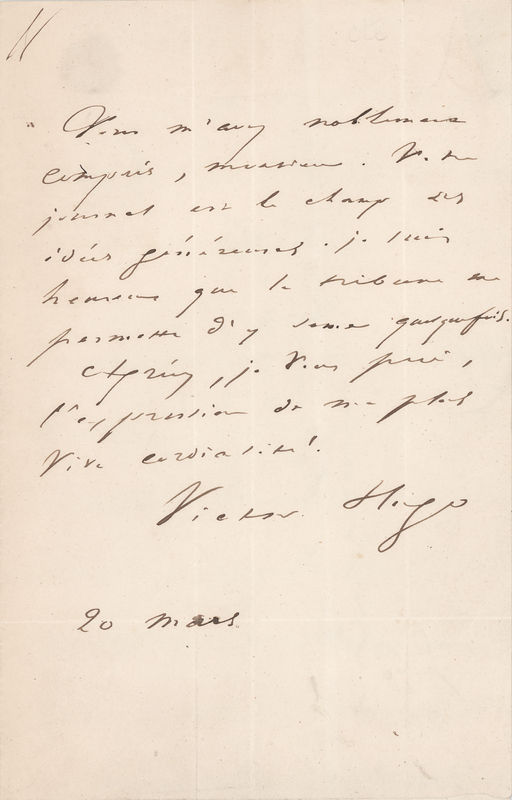 Vous m'avez noblement
compris, monsieur. Votre
journal est le champ des
idées généreuses. je suis
heureux que la tribune me
permette d'y semer quelquefois.
Agréez, je vous prie,
l'expression de ma plus
vive cordialité.
Victor Hugo
20 mars